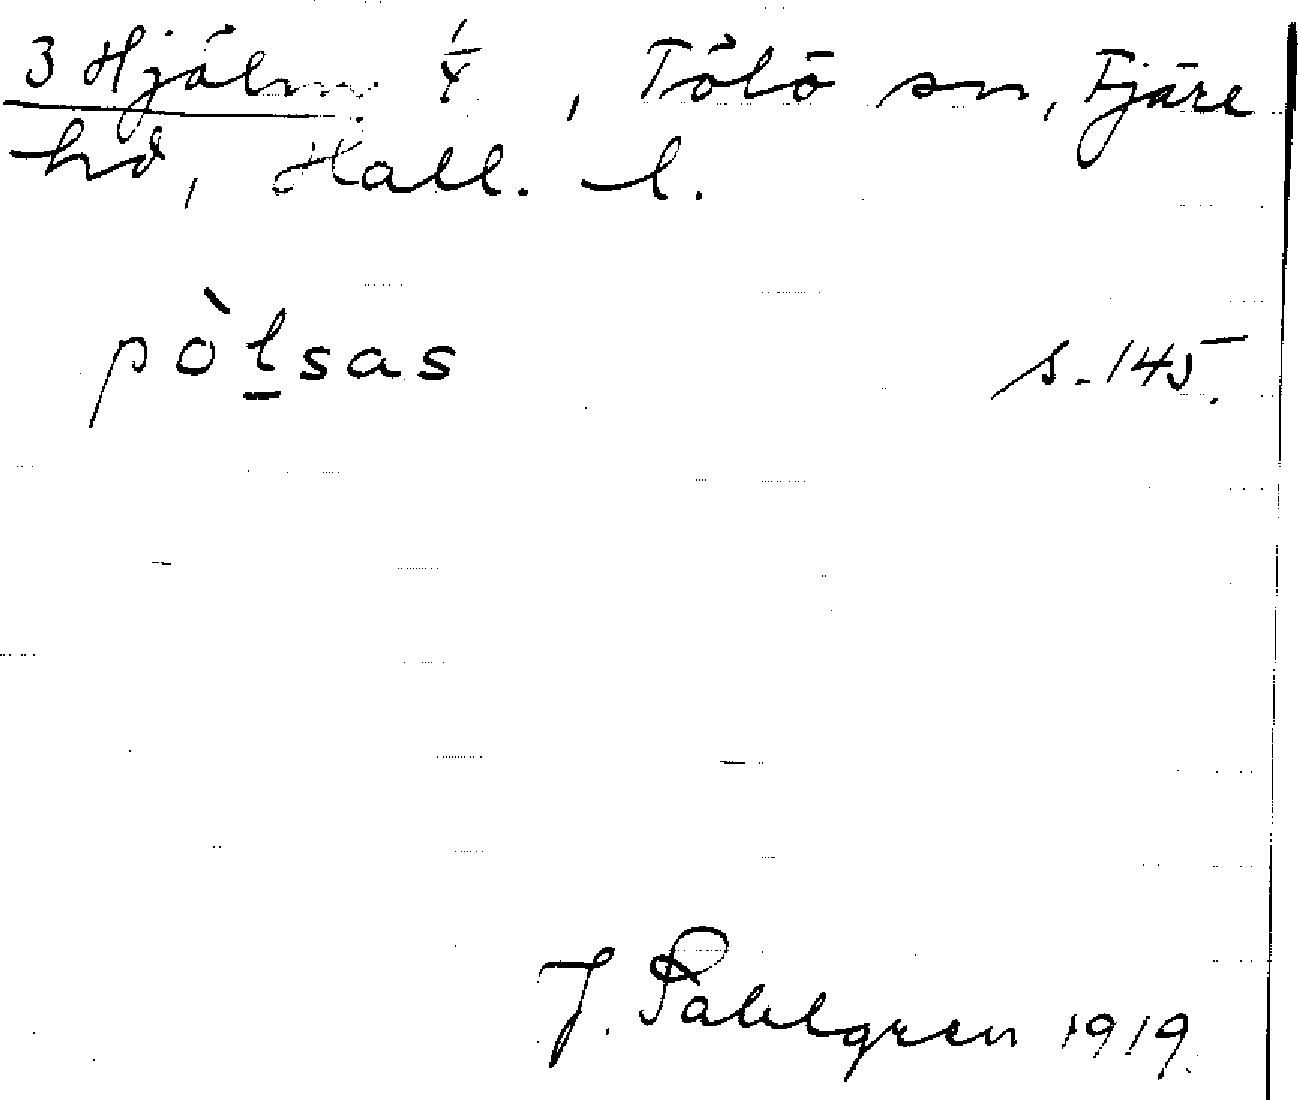 3 Hjälm. 1/4, Tölö sn, Fjäre
hd, Hall. l.
pòl̲sas s. 145.
J. Sahlgren 1919.